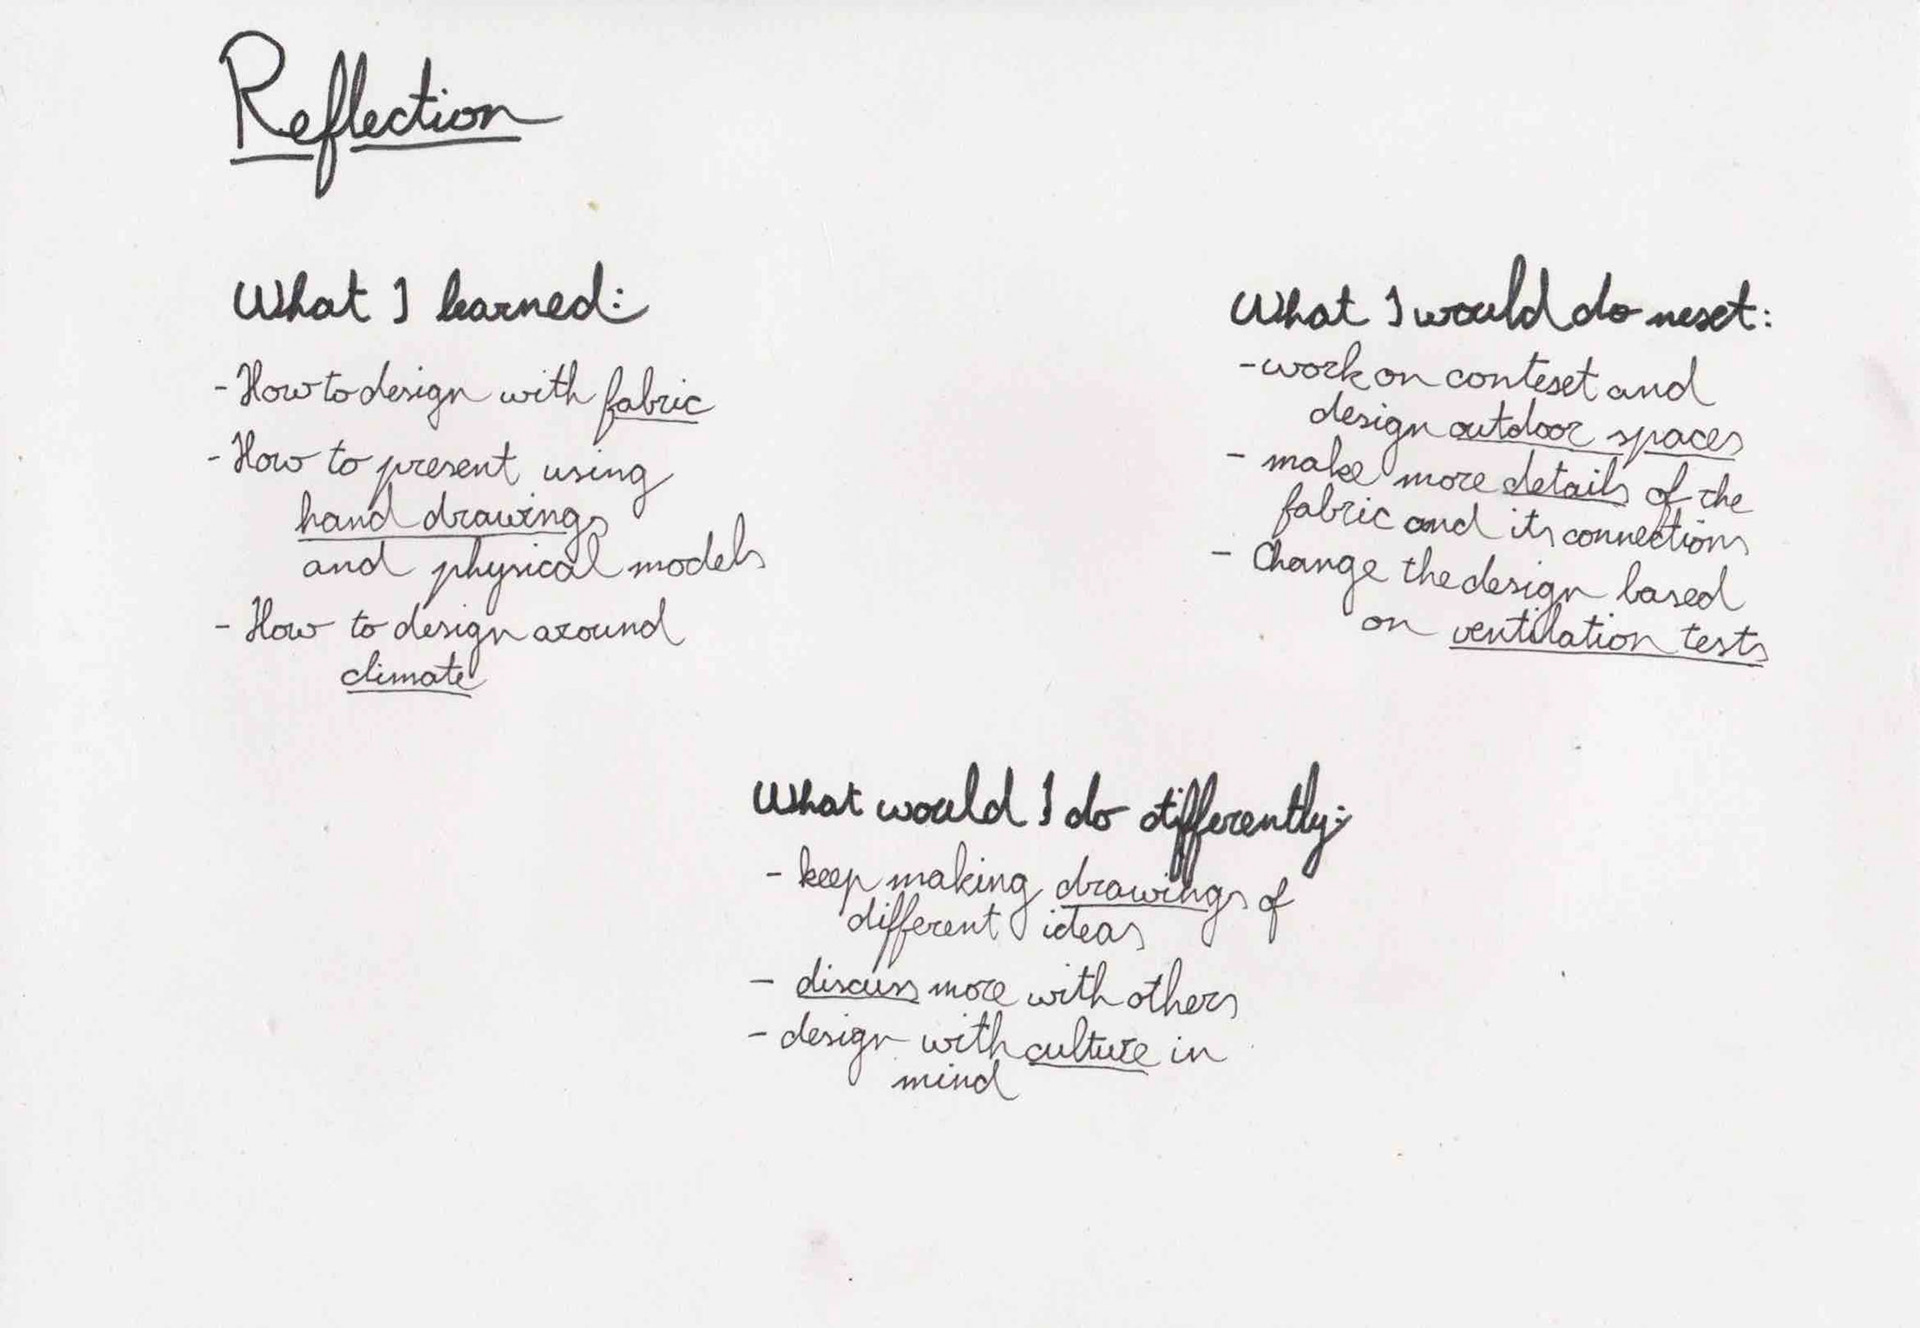 Reflection
What I learned:
- How to design with fabric
- How to present using
hand drawings
and physical models
- How to design around
climate
What I would do next:
- work on context and
design outdoor spaces
- make more details of the
fabric and its connections
- Change the design based
on ventilation tests
What would I do differently:
- keep making drawings of
different ideas
- discuss more with others
- design with culture in
mind